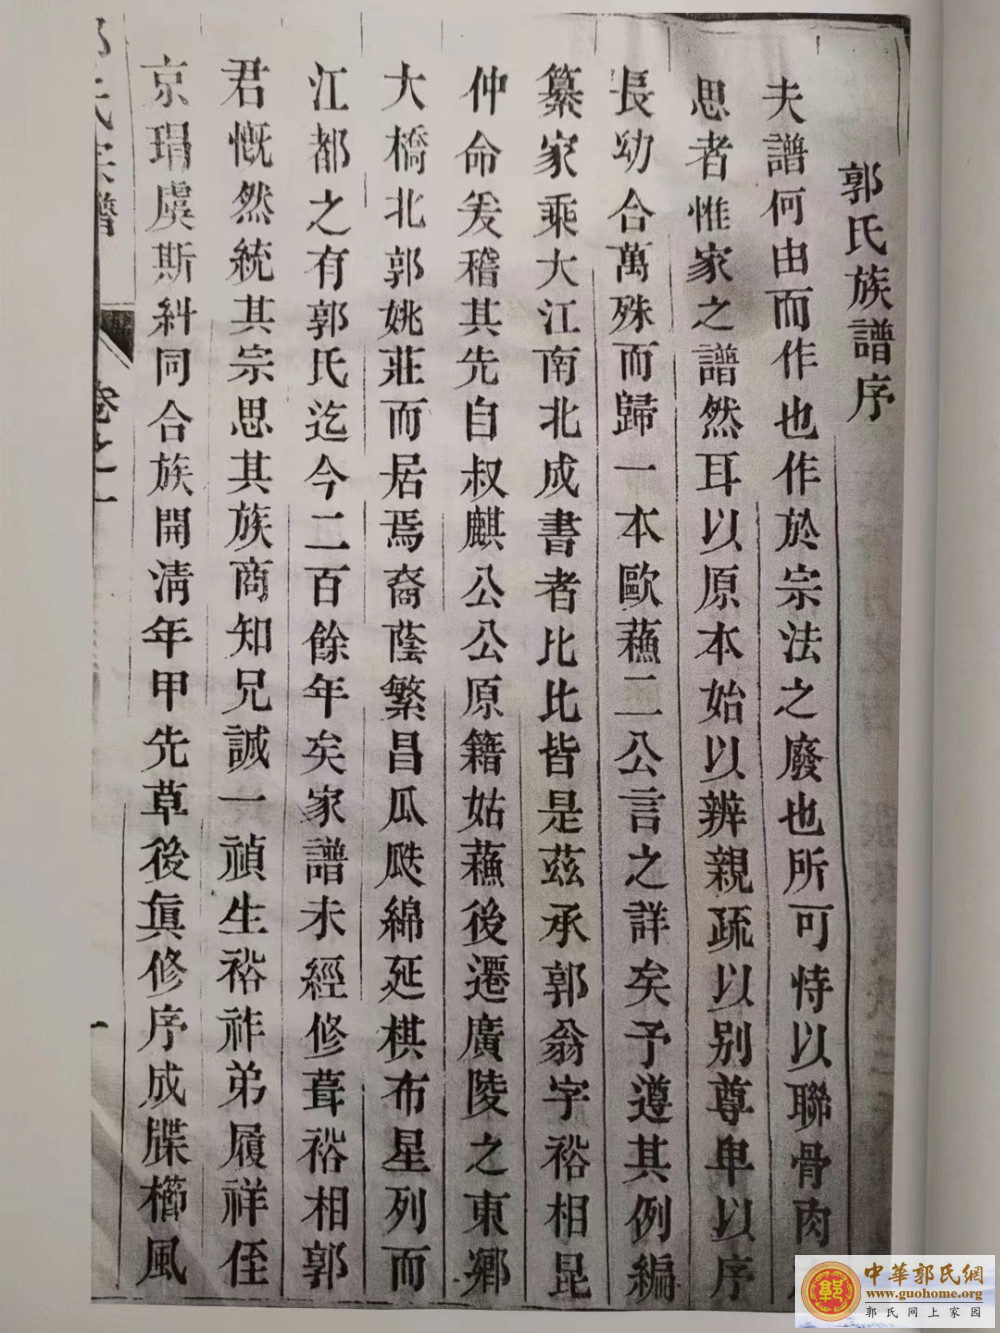 郭氏族譜序
夫譜何由而作也作於宗法之廢也所可恃以聯骨肉
思者惟家之譜然耳以原本始以辨親疏以别尊卑以序
長幼合萬殊而歸一本歐蘓二公言之詳矣予遵其例編
纂家乘大江南北成書者比比皆是茲承郭翁字裕相昆
仲命爰稽其先自叔麒公公原籍姑蘓後遷廣陵之東鄉
大橋北郭姚莊而居焉裔蔭繁昌瓜瓞綿延棋布星列而
江都之有郭氏迄今二百餘年矣家譜未經修葺裕相郭
君慨然統其宗思其族商知兄誠一禎生裕祚弟履祥侄
京琄虞斯糾同合族開淸年甲先草後眞修序成牒櫛風
氏宗譜
卷之一
一
中華郭氏網
www.guohome.org
郭氏网上家园